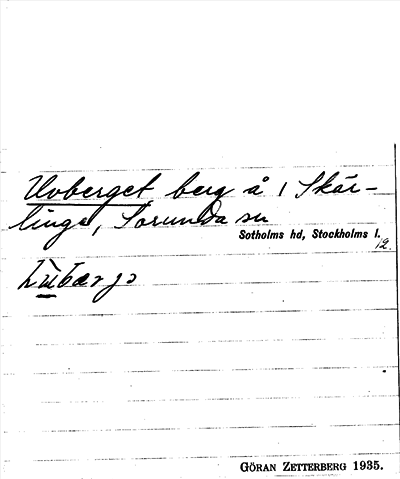 Uvberget berg å 1 Skär-
linge, Sorunda sn
Sotholms hd, Stockholms l.
12.
GÖRAN ZETTERBERG 1935.